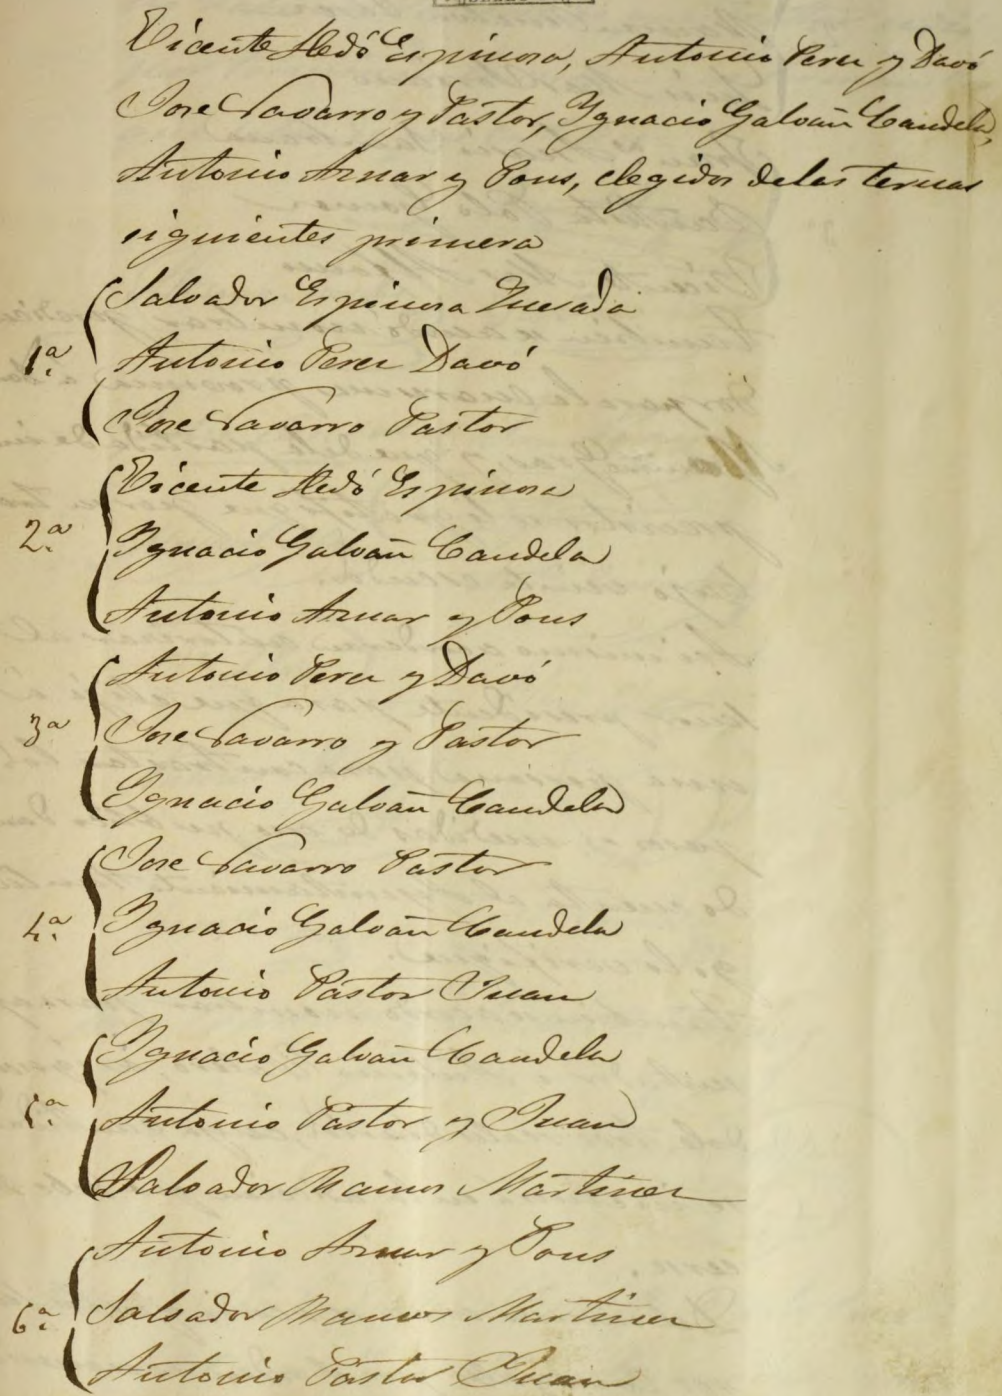 Vicente Aledó Espinosa, Antonio Perez y Davó
Jose Navarro y Pastor, Ygnacio Galvañ Candela,
Antonio Aznar y Pons, elegidos delas ternas
siguientes primera
Salvador Espinosa Quesada
1.ª Antonio Perez Davó
Jose Navarro Pastor
Vicente Aledó Espinosa
2.ª Ygnacio Galvañ Candela
Antonio Aznar y Pons
Antonio Perez y Davó
3ª Jose Navarro y Pastor
Ygnacio Galvañ Candela
Jose Navarro Pastor
4.ª Ygnacio Galvañ Candela
Antonio Pastor Juan
Ygnacio Galvañ Candela
5.ª Antonio Pastor y Juan
Salvador Mamos Martinez
Antonio Aznar y Pons
6.ª Salvador Mamos Martinez
Antonio Pastor Juan